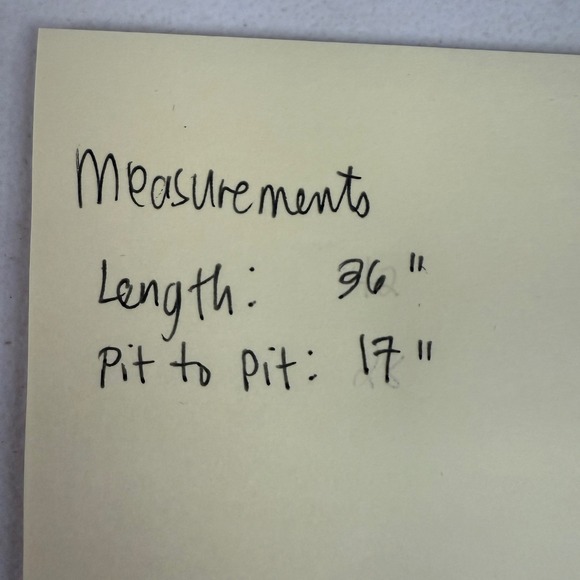 Measurements
Length: 36"
Pit to Pit: 17"